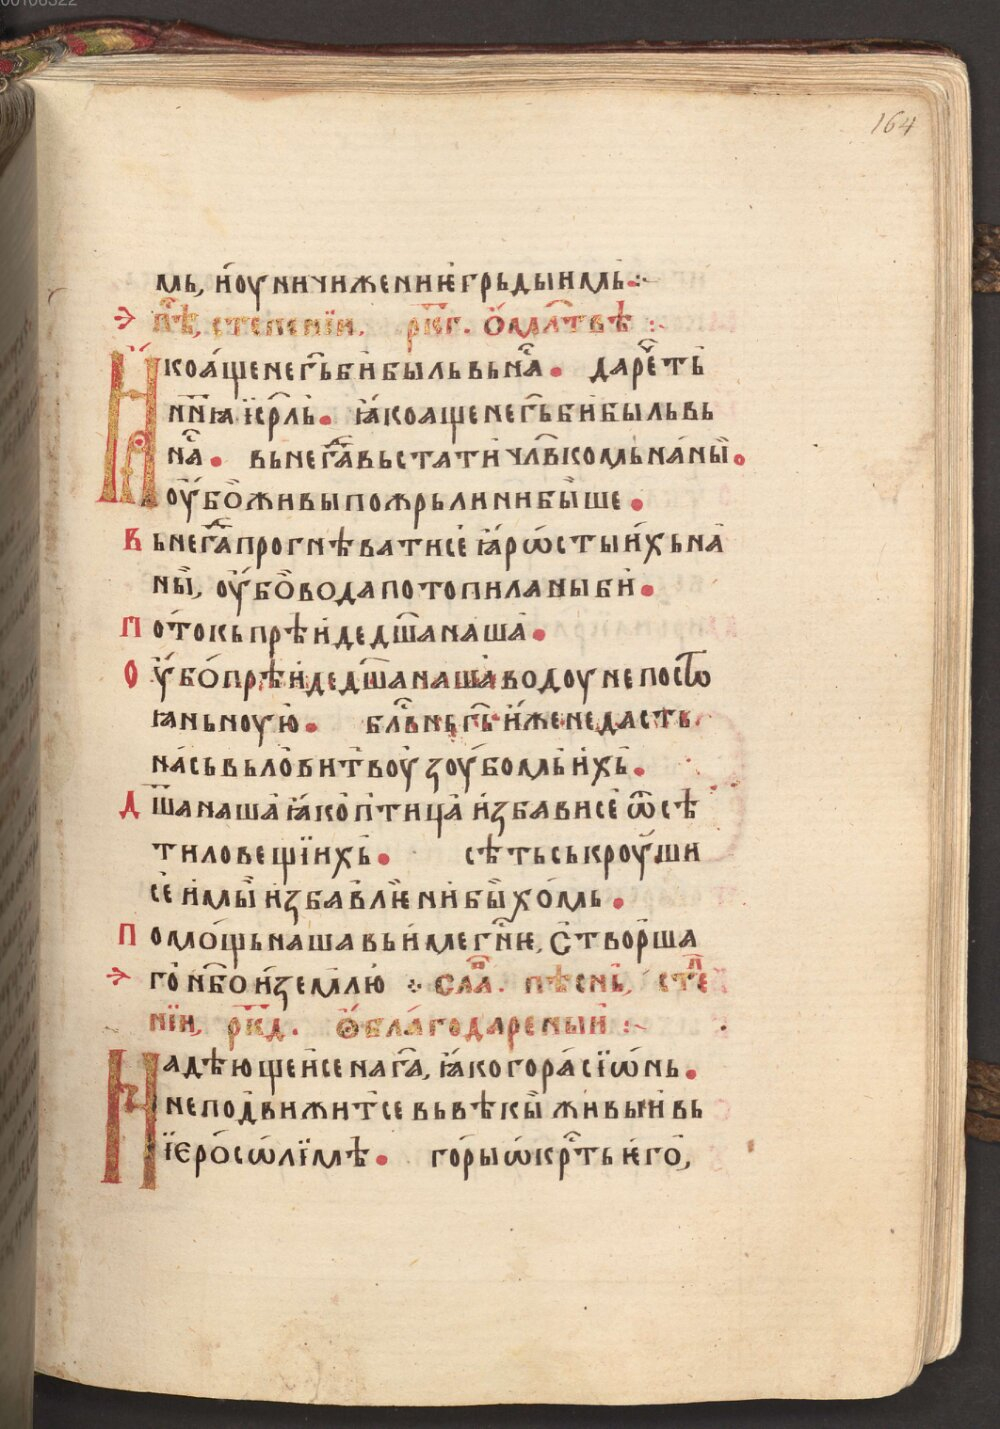 164
мь, и҆ оу ничижениѥ грьдыимь ⁘
пѣ҇, степениїи. рк҃г. Ѻ҆ млтвѣ ⁘
Ꙗко а҆ще не гь҇ би былъ вь на҇. да рет҇ь
ннꙗ їсрл҃ь. ꙗко аще не гь҇ би быль вь
на҇. вьнегда вьстати чл҃вкомь на ны.
оу҆бо живы пожрьли ни быше.
Вьнегда прогнѣватисе ꙗрѡсты и҆хь на
ны, оу҆бо вода потопила ны би.
Потокь прѣиде дш҃а наша.
Оу҆бо прѣиде дш҃а наша водоу непосто
ꙗньноую. блв҃нь гь҇ и҆же не дасть
нась вь ловитвоу зоубомь и҆хь.
Дш҃а наша ꙗко птица и҆збависе ѿ сѣ
ти ловещїихь. сѣть ськроуши
се и мы избавлѥни быхомь.
Помощь наша вь име гн҃ѥ, створша
го нб҃о и҆ землю ⁘ сла҇. пѣснь, сте
нїи, рк҃д. Ѻ҆ благодарении ⁘
Надѣющеисе на га҃, ꙗко гора сїѡнь.
не подвижитсе вь вѣкы живыи вь
їеросѡлїмѣ. горы ѡкрт҇ь ѥго,